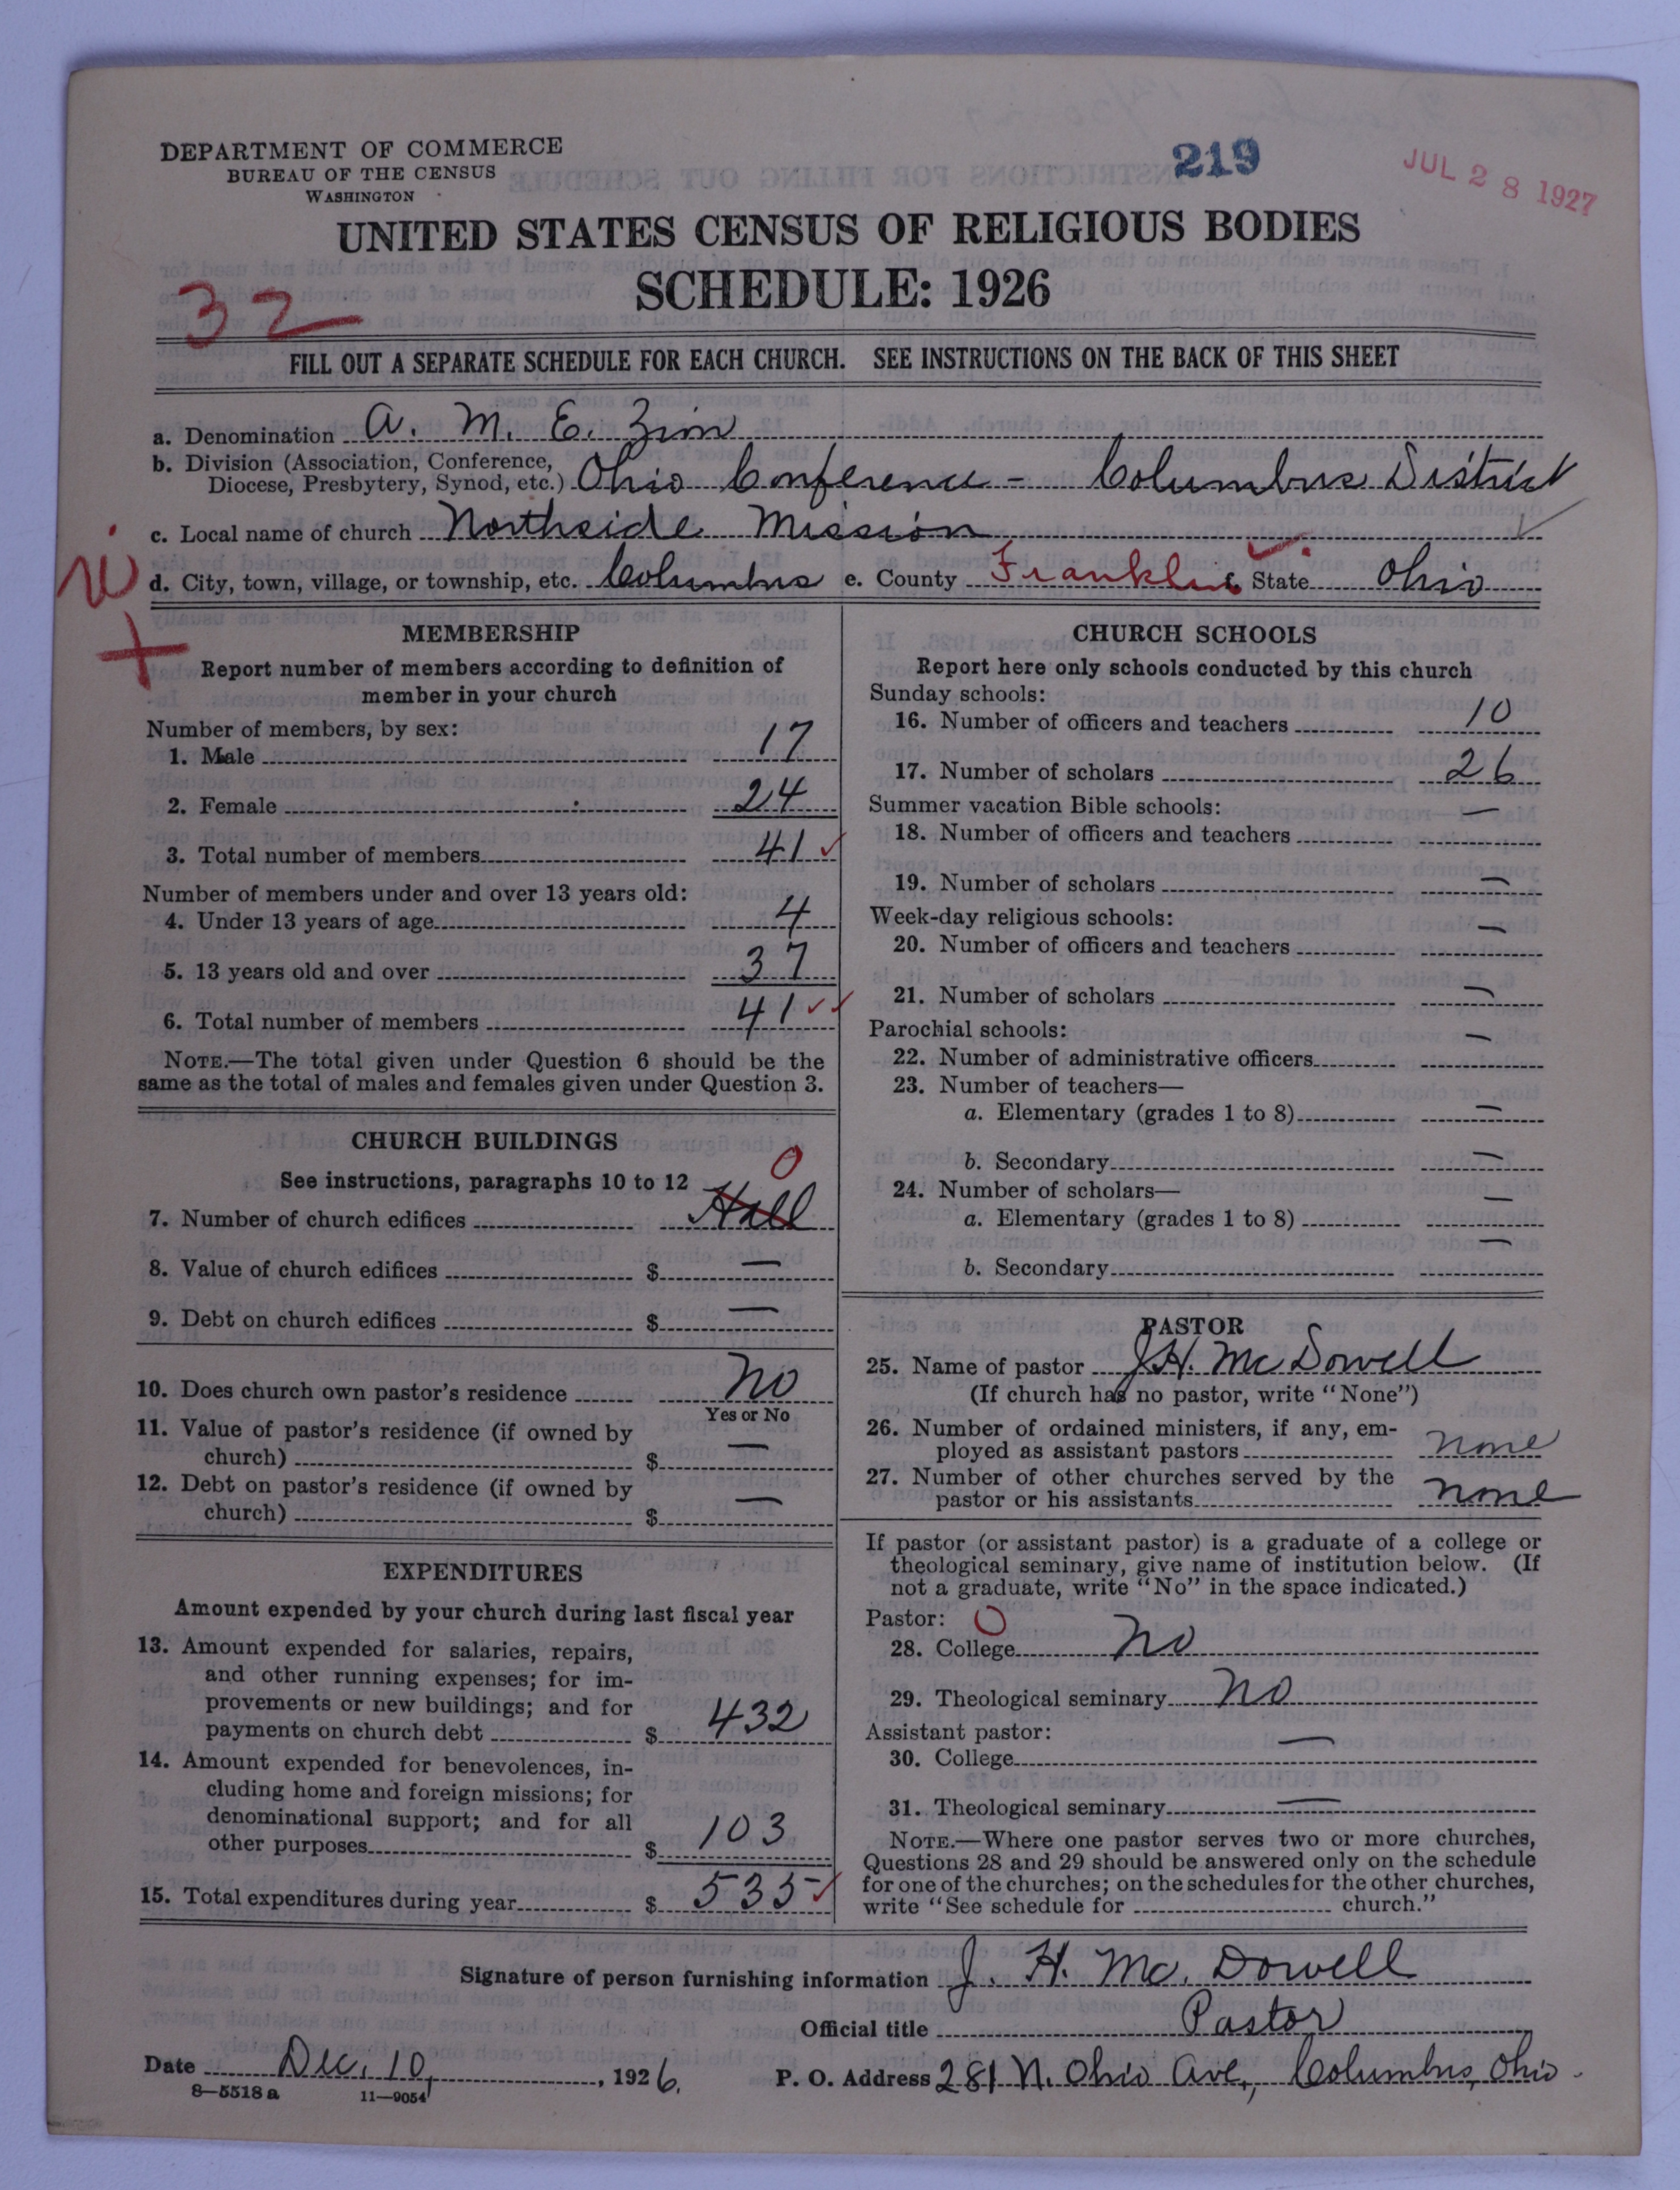 DEPARTMENT OF COMMERCE
BUREAU OF THE CENSUS
WASHINGTON
219
JUL 28 1927
UNITED STATES CENSUS OF RELIGIOUS BODIES
SCHEDULE: 1926
32
FILL OUT A SEPARATE SCHEDULE FOR EACH CHURCH. SEE INSTRUCTIONS ON THE BACK OF THIS SHEET
a. Denomination A. M. E. Zion
b. Division (Association, Conference,
Diocese, Presbytery, Synod, etc.) Ohio Conference - Columbus District
c. Local name of church Northside Mission
d. City, town, village, or township, etc. Columbus e. County Franklin State Ohio
MEMBERSHIP
Report number of members according to definition of
member in your church
Number of members, by sex:
1. Male 17
2. Female 24
3. Total number of members 41 ✓
Number of members under and over 13 years old:
4. Under 13 years of age 4
5. 13 years old and over 37
6. Total number of members 41 ✓✓
NOTE.—The total given under Question 6 should be the
same as the total of males and females given under Question 3.
CHURCH BUILDINGS
See instructions, paragraphs 10 to 12 0
7. Number of church edifices Hall
8. Value of church edifices $ —
9. Debt on church edifices $ —
10. Does church own pastor's residence No
Yes or No
11. Value of pastor's residence (if owned by
church) $ —
12. Debt on pastor's residence (if owned by
church) $ —
EXPENDITURES
Amount expended by your church during last fiscal year
13. Amount expended for salaries, repairs,
and other running expenses; for im-
provements or new buildings; and for
payments on church debt $ 432
14. Amount expended for benevolences, in-
cluding home and foreign missions; for
denominational support; and for all
other purposes $ 103
15. Total expenditures during year $ 535 ✓
CHURCH SCHOOLS
Report here only schools conducted by this church
Sunday schools:
16. Number of officers and teachers 10
17. Number of scholars 26
Summer vacation Bible schools:
18. Number of officers and teachers —
19. Number of scholars —
Week-day religious schools:
20. Number of officers and teachers —
21. Number of scholars —
Parochial schools:
22. Number of administrative officers —
23. Number of teachers—
a. Elementary (grades 1 to 8) —
b. Secondary —
24. Number of scholars—
a. Elementary (grades 1 to 8) —
b. Secondary —
PASTOR
25. Name of pastor J.H. McDowell
(If church has no pastor, write "None")
26. Number of ordained ministers, if any, em-
ployed as assistant pastors none
27. Number of other churches served by the
pastor or his assistants none
If pastor (or assistant pastor) is a graduate of a college or
theological seminary, give name of institution below. (If
not a graduate, write "No" in the space indicated.)
Pastor: 0
28. College No
29. Theological seminary No
Assistant pastor:
30. College —
31. Theological seminary —
NOTE.—Where one pastor serves two or more churches,
Questions 28 and 29 should be answered only on the schedule
for one of the churches; on the schedules for the other churches,
write "See schedule for church."
Signature of person furnishing information J. H. Mc. Dowell
Official title Pastor
Date Dec. 10, 1926. P. O. Address 281 N. Ohio Ave., Columbus, Ohio.
8—5518 a 11—9054